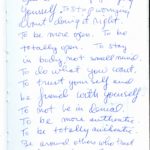 yourself. To stop worrying
about doing it right.
To be more open. To be
totally open. To stay
in body, not small mind
To do what you want.
To trust your self and
be friends with yourself
To not be in denial.
To be more authentic
To be totally authentic.
Be around others who trust